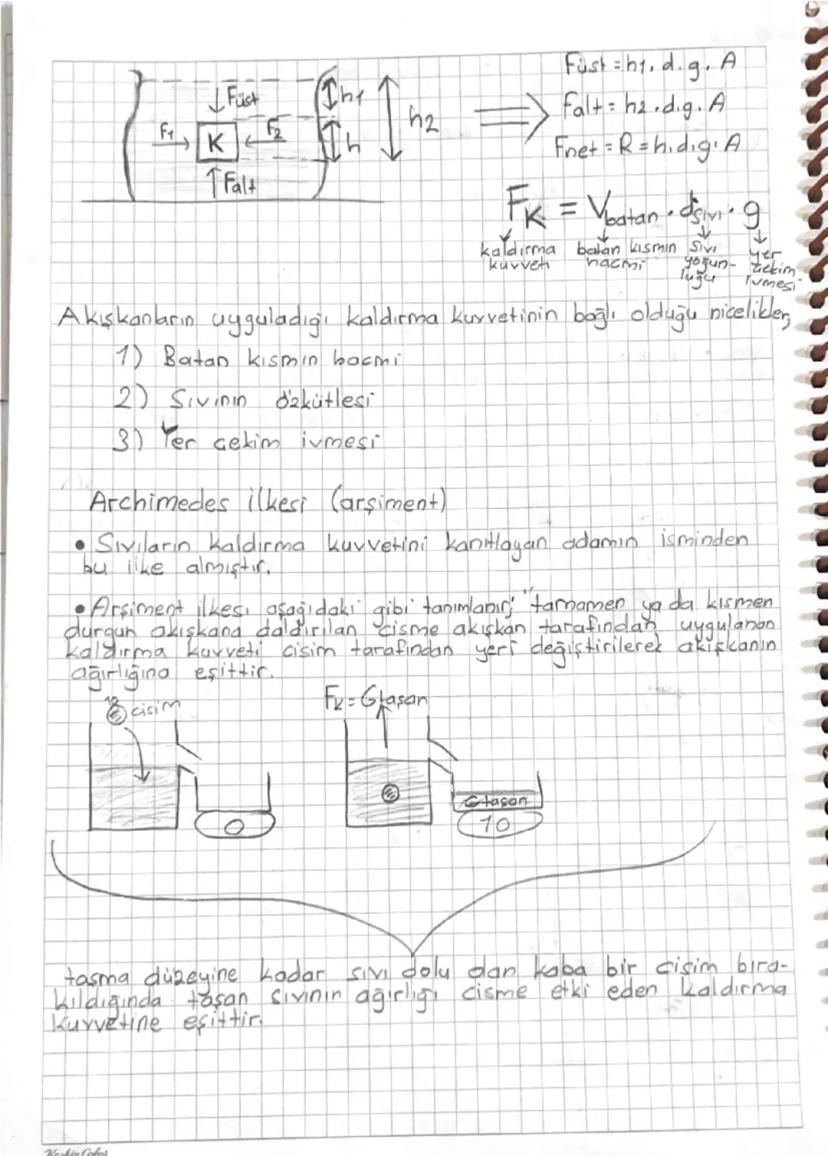 Füst = h1. d. g. A
↓Füst
h1
F1
K
F2
h2
Falt = h2.d.g. A
h
Fnet = R = h.d.g.A
↑Falt
FK = Vbatan . dsıvı . g
kaldırma kuvveti
batan kısmın hacmi
sıvı yoğunluğu
yer çekim ivmesi
Akışkanların uyguladığı kaldırma kuvvetinin bağlı olduğu nicelikler;
1) Batan kısmın hacmi
2) Sıvının özkütlesi
3) Yer çekim ivmesi
Archimedes ilkesi (arşiment)
• Sıvıların kaldırma kuvvetini kanıtlayan adamın isminden
bu ilke almıştır.
• Arşiment ilkesi aşağıdaki gibi tanımlanır; "tamamen ya da kısmen
durgun akışkana daldırılan cisme akışkan tarafından uygulanan
kaldırma kuvveti cisim tarafından yeri değiştirilerek akışkanın
ağırlığına eşittir.
cisim
FK = Gtaşan
0
Gtaşan
10
taşma düzeyine kadar sıvı dolu olan kaba bir cisim bıra-
kıldığında taşan sıvının ağırlığı cisme etki eden kaldırma
kuvvetine eşittir.